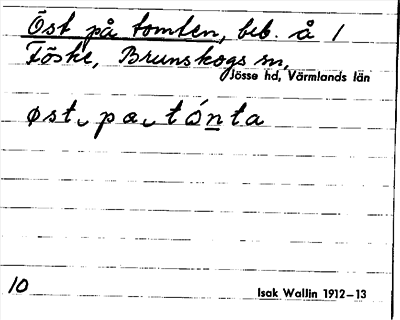 Öst på tomten, beb. å 1
Föske, Brunskogs sn,
Jösse hd, Värmlands län
øst ‿ pa ‿ tónta
10
Isak Wallin 1912–13